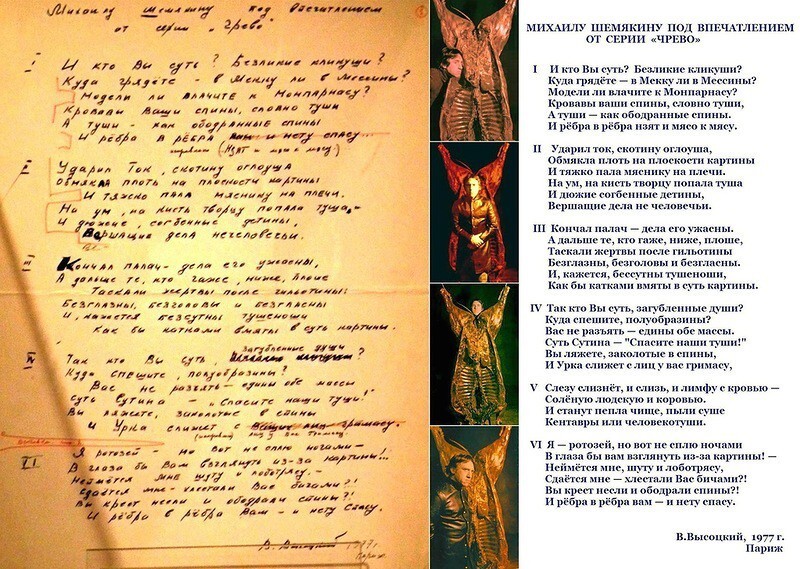 Михаилу Шемякину под впечатлением
от серии "Чрево"
I
И кто Вы суть? Безликие кликуши?
Куда грядёте - в Мекку ли в Мессины?
Модели ли влачите к Монпарнасу?
Кровавы Ваши спины, словно туши
А туши - как ободранные спины
И рёбра в рёбра и нету спасу...
II
Ударил Ток, скотину оглоуша
Обмякла плоть на плоскости картины
И тяжко пала мяснику на плечи.
На ум, на кисть творцу попала туша
И дюжие согбенные детины,
Вершащие дела нечеловечьи.
III
Кончал палач - дела его ужасны,
А дальше те, кто гаже, ниже, плоше
Таскали жертвы после гильотины:
Безглазны, безголовы и безгласны
И, кажется бессутны тушеноши
Как бы катками вмяты в суть картины.
IV
загубленные души
Так кто Вы суть, ?
Куда спешите, полуобразины?
Вас не разъять - едины обе массы
Суть Сутина - "Спасите наши туши!"
Вы ляжете, заколотые в спины
И Урка слижет с гримасу.
VI.
Я - ротозей - но вот не сплю ночами -
В глаза бы Вам взглянуть из-за картины!...
Неймётся мне шуту и лоботрясу, -
Сдаётся мне - хлестали Вас бичами?!
Вы крест несли и ободрали спины?!
И рёбра в рёбра Вам - и нету спасу.
В. Высоцкий 1977г.
Париж
МИХАИЛУ ШЕМЯКИНУ ПОД ВПЕЧАТЛЕНИЕМ
ОТ СЕРИИ «ЧРЕВО»
I И кто Вы суть? Безликие кликуши?
Куда грядёте — в Мекку ли в Мессины?
Модели ли влачите к Монпарнасу?
Кровавы ваши спины, словно туши,
А туши — как ободранные спины.
И рёбра в рёбра нзят и мясо к мясу.
II Ударил ток, скотину оглоуша,
Обмякла плоть на плоскости картины
И тяжко пала мяснику на плечи.
На ум, на кисть творцу попала туша
И дюжие согбенные детины,
Вершащие дела не человечьи.
III Кончал палач — дела его ужасны.
А дальше те, кто гаже, ниже, плоше,
Таскали жертвы после гильотины
Безглазны, безголовы и безгласны.
И, кажется, бессутны тушеноши,
Как бы катками вмяты в суть картины.
IV Так кто Вы суть, загубленные души?
Куда спешите, полуобразины?
Вас не разъять — едины обе массы.
Суть Сутина — "Спасите наши туши!"
Вы ляжете, заколотые в спины,
И Урка слижет с лиц у вас гримасу,
V Слезу слизнёт, и слизь, и лимфу с кровью —
Солёную людскую и коровью.
И станут пепла чище, пыли суше
Кентавры или человекотуши.
VI Я — ротозей, но вот не сплю ночами
В глаза бы Вам взглянуть из-за картины! —
Неймётся мне, шуту и лоботрясу,
Сдаётся мне — хлестали Вас бичами?!
Вы крест несли и ободрали спины?!
И рёбра в рёбра вам — и нету спасу.
В.Высоцкий, 1977 г.
Париж